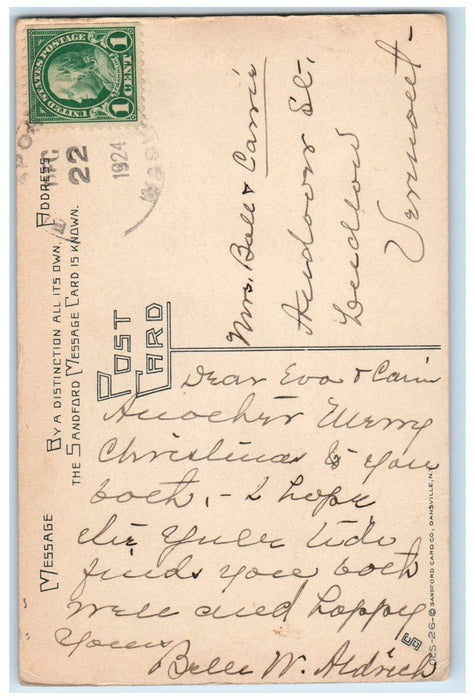 UNITED STATES POSTAGE
1 CENT 1
DEC
22
1924
WASH
BY A DISTINCTION ALL ITS OWN.
THE SANDFORD MESSAGE CARD IS KNOWN.
POST
CARD
ADDRESS
Mrs. Ball & Carrie
Andover St.
Ludlow
Vermont-
MESSAGE
Dear Eva & Carrie
Another Merry
Christmas to you
both, - I hope
the Yule tide
finds you both
well and happy
Yours
Belle W. Aldrich
26-© SANDFORD CARD CO., DANSVILLE, N.Y.